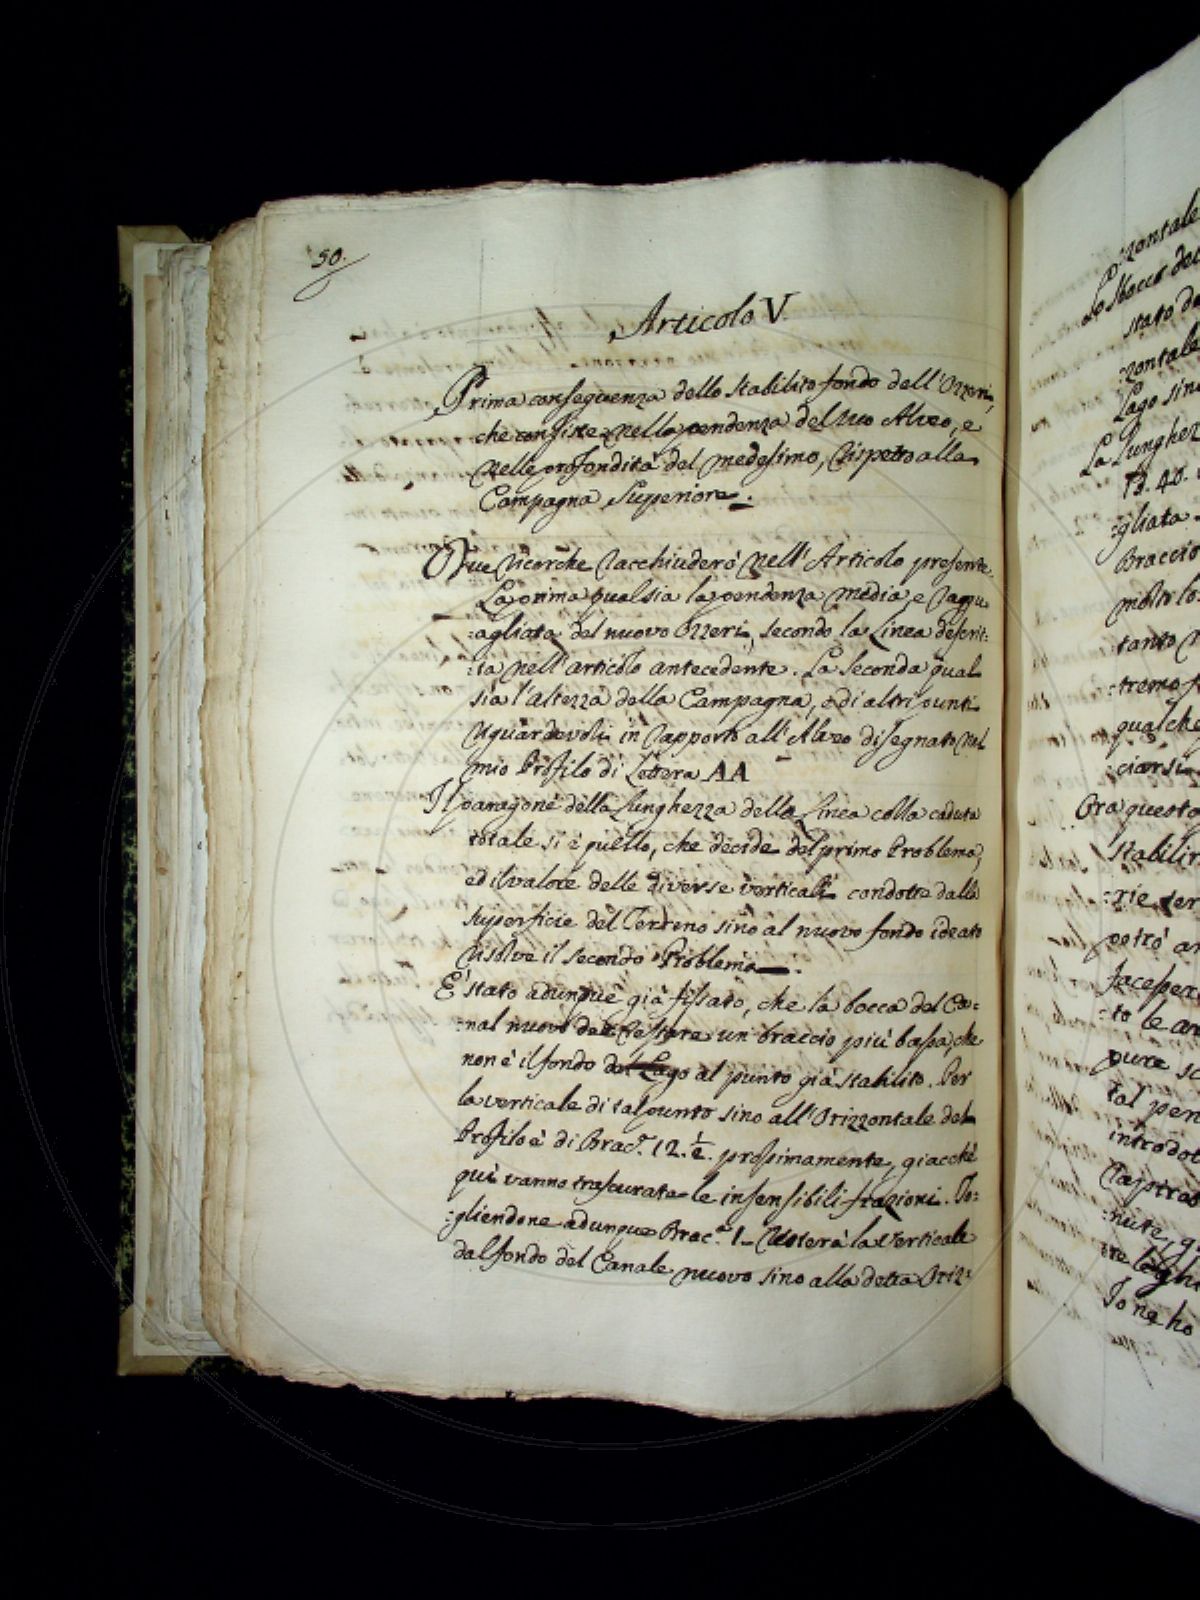 50.
Articolo V.
Prima conseguenza dello stabilito fondo dell'Ozzeri,
che consiste nella pendenza del suo Alveo, e
nelle profondità del medesimo, rispetto alla
Campagna Superiore.
Due ricerche racchiuderò nell'Articolo presente.
La prima qual sia la pendenza media e raggu=
:agliata del nuovo Ozzeri, secondo la Linea descrit:
:ta nell'articolo antecedente. La seconda qual
sia l'altezza della Campagna, e di altri punti
riguardevoli in rapporto all'Alveo disegnato nel
mio Profilo di Lettera AA
Il paragone della Lunghezza della Linea colla caduta
totale si è quello, che decide del primo Problema,
ed il valore delle diverse verticali condotte dalla
superficie del Terreno sino al nuovo fondo ideato
risolve il secondo Problema.
È stato adunque già fissato, che la bocca del Ca=
:nal nuovo deve restare un braccio più bassa, che
non è il fondo del Lago al punto già stabilito. Per
la verticale di tal punto sino all'Orizzontale del
Profilo è di Brac.ª 12. ½. prossimamente, giacchè
qui vanno trascurate le insensibili frazioni. To=
:gliendone adunque Brac.º 1_ resterà la verticale
dal fondo del Canale nuovo sino alla detta Oriz=
:zontale
Lo sbocco del
stato da
:zontale
Lago sino
La Lunghez
:gliata
Braccio
molto
tanto
:tremo
qualche
:ciarsi
Ora questo
stabilir
:rie
potrò
:to le
pure
tal pen
introdot
:nute,
Io ne ho